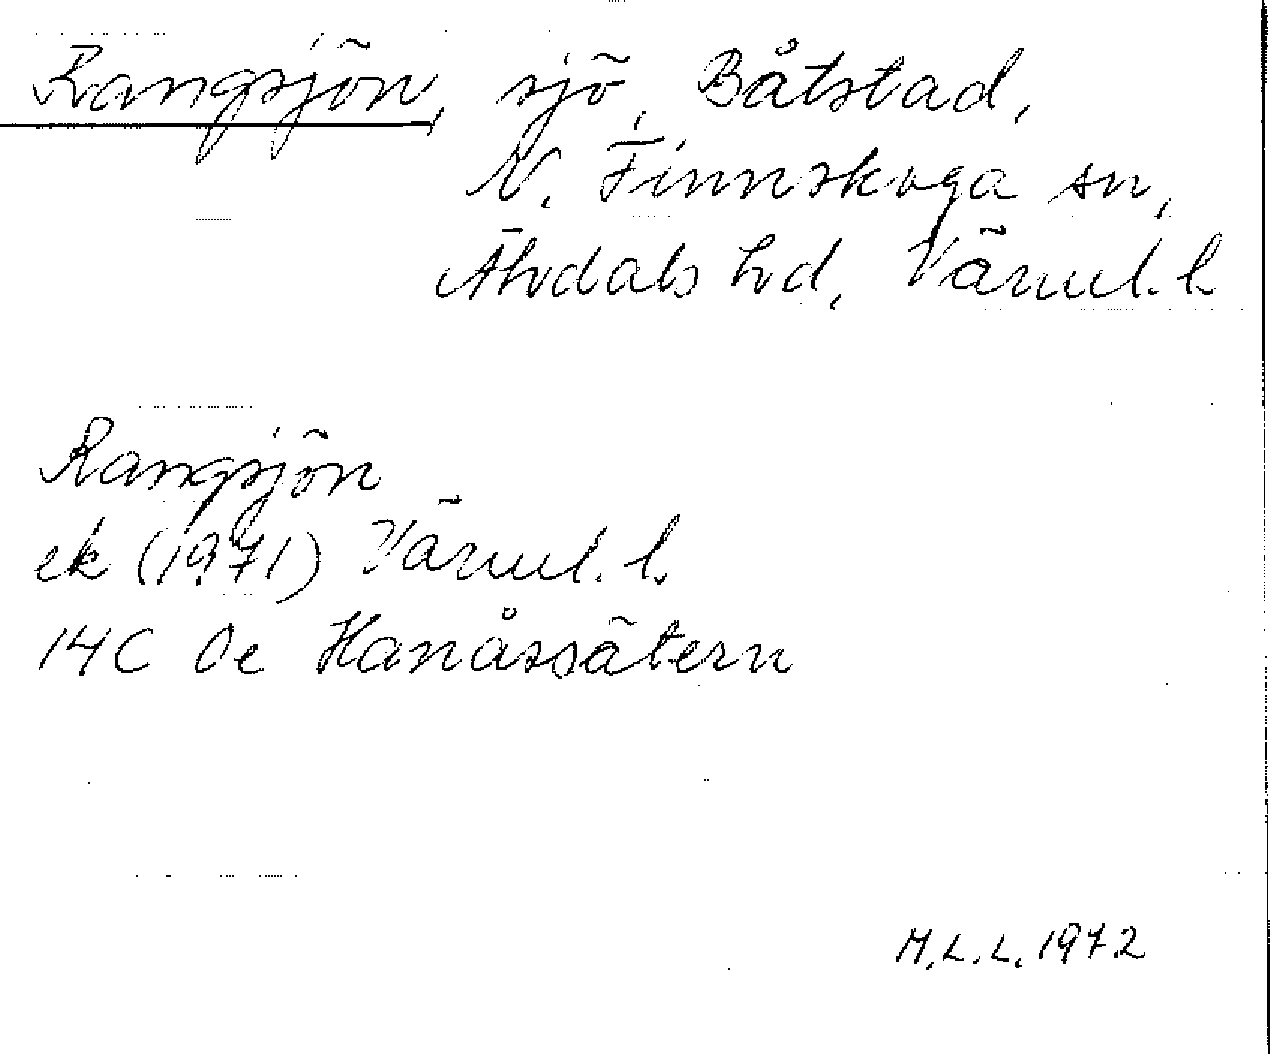 Rangsjön, sjö, Båtstad,
N. Finnskoga sn,
Älvdals hd, Värml. l.
Rangsjön
ek (1971) Värml. l.
14C 0e Hanåssätern
M.L.L. 1972